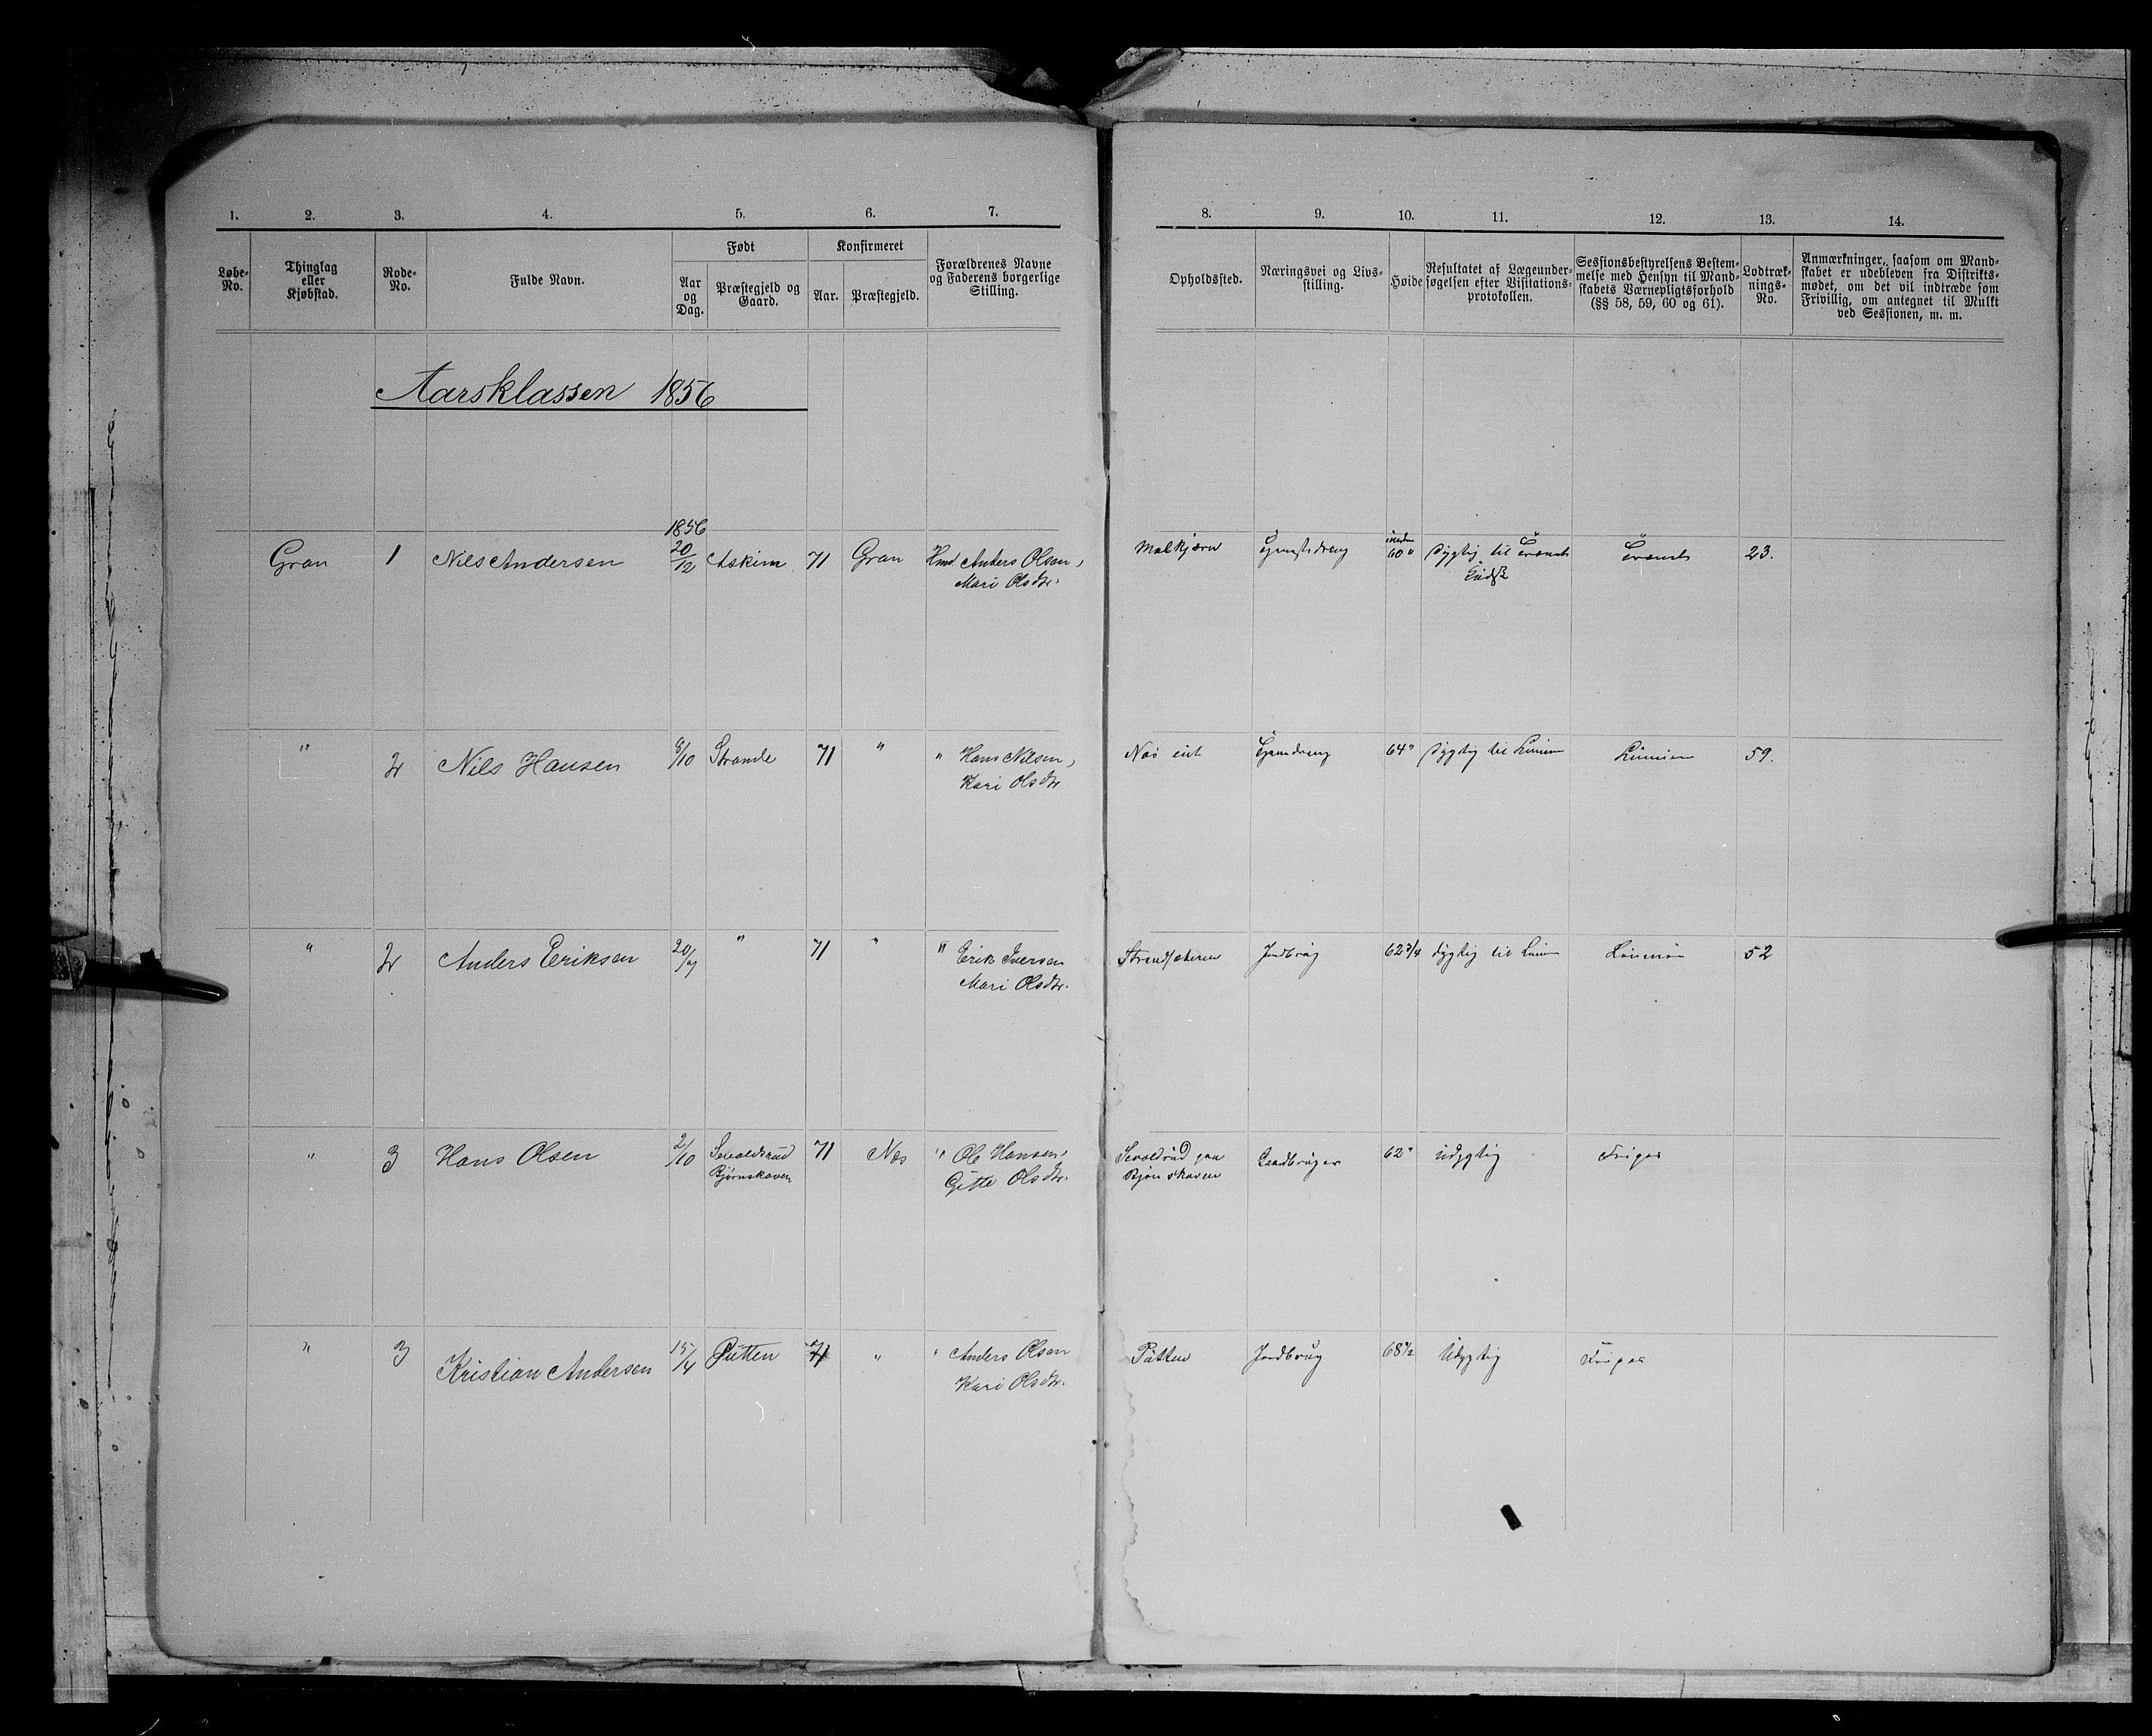 1. 2. 3. 4. 5. 6. 7. 8. 9. 10. 11. 12. 13. 14.
Løbe-
No.
Thinglag
eller
Kjøbstad.
Rode-
No.
Fulde Navn.
Født
Aar
og
Dag.
Præstegjeld og
Gaard.
Konfirmeret
Aar.
Præstegjeld.
Forældrenes Navne
og Faderens borgerlige
Stilling.
Opholdssted.
Næringsvei og Livs-
stilling.
Høide
Resultatet af Lægeunder-
søgelsen efter Visitations-
protokollen.
Sessionsbestyrelsens Bestem-
melse med Hensyn til Mand-
skabets Værnepligtsforhold
(§§ 58, 59, 60 og 61).
Lodtræk-
nings-
No.
Anmærkninger, saasom om Mand-
skabet er udebleven fra Distrikts-
mødet, om det vil indtræde som
Frivillig, om antegnet til Mulkt
ved Sessionen, m. m.
Aarsklassen 1856
1856
Gran 1 Nils Andersen 20/12 Askim 71 Gran Hmd Anders Olsen, 60" dygtig til 23.
Mari Olsdtr.
" 2 Nils Hansen 8/10 Strande 71 " " Hans Nilsen, 64" dygtig til Linien Linien 59.
Kari Olsdtr
" 2 Anders Eriksen 20/7 " 71 " " Erik Iversen Jordbrug 62 3/4 dygtig til Linien Linien 52
Mari Olsdtr.
" 3 Hans Olsen 2/10 Sevaldsrud 71 Nes " Ole Hansen, Sevaldrud paa 62" udygtig Frigas
Bjørnskoven Gitte Olsdtr. Bjønskoven
" 3 Kristian Andersen 15/4 Putten 71 " " Anders Olsen Putten Jordbrug 68 1/2 Udygtig Frigas
Kari Olsdtr.